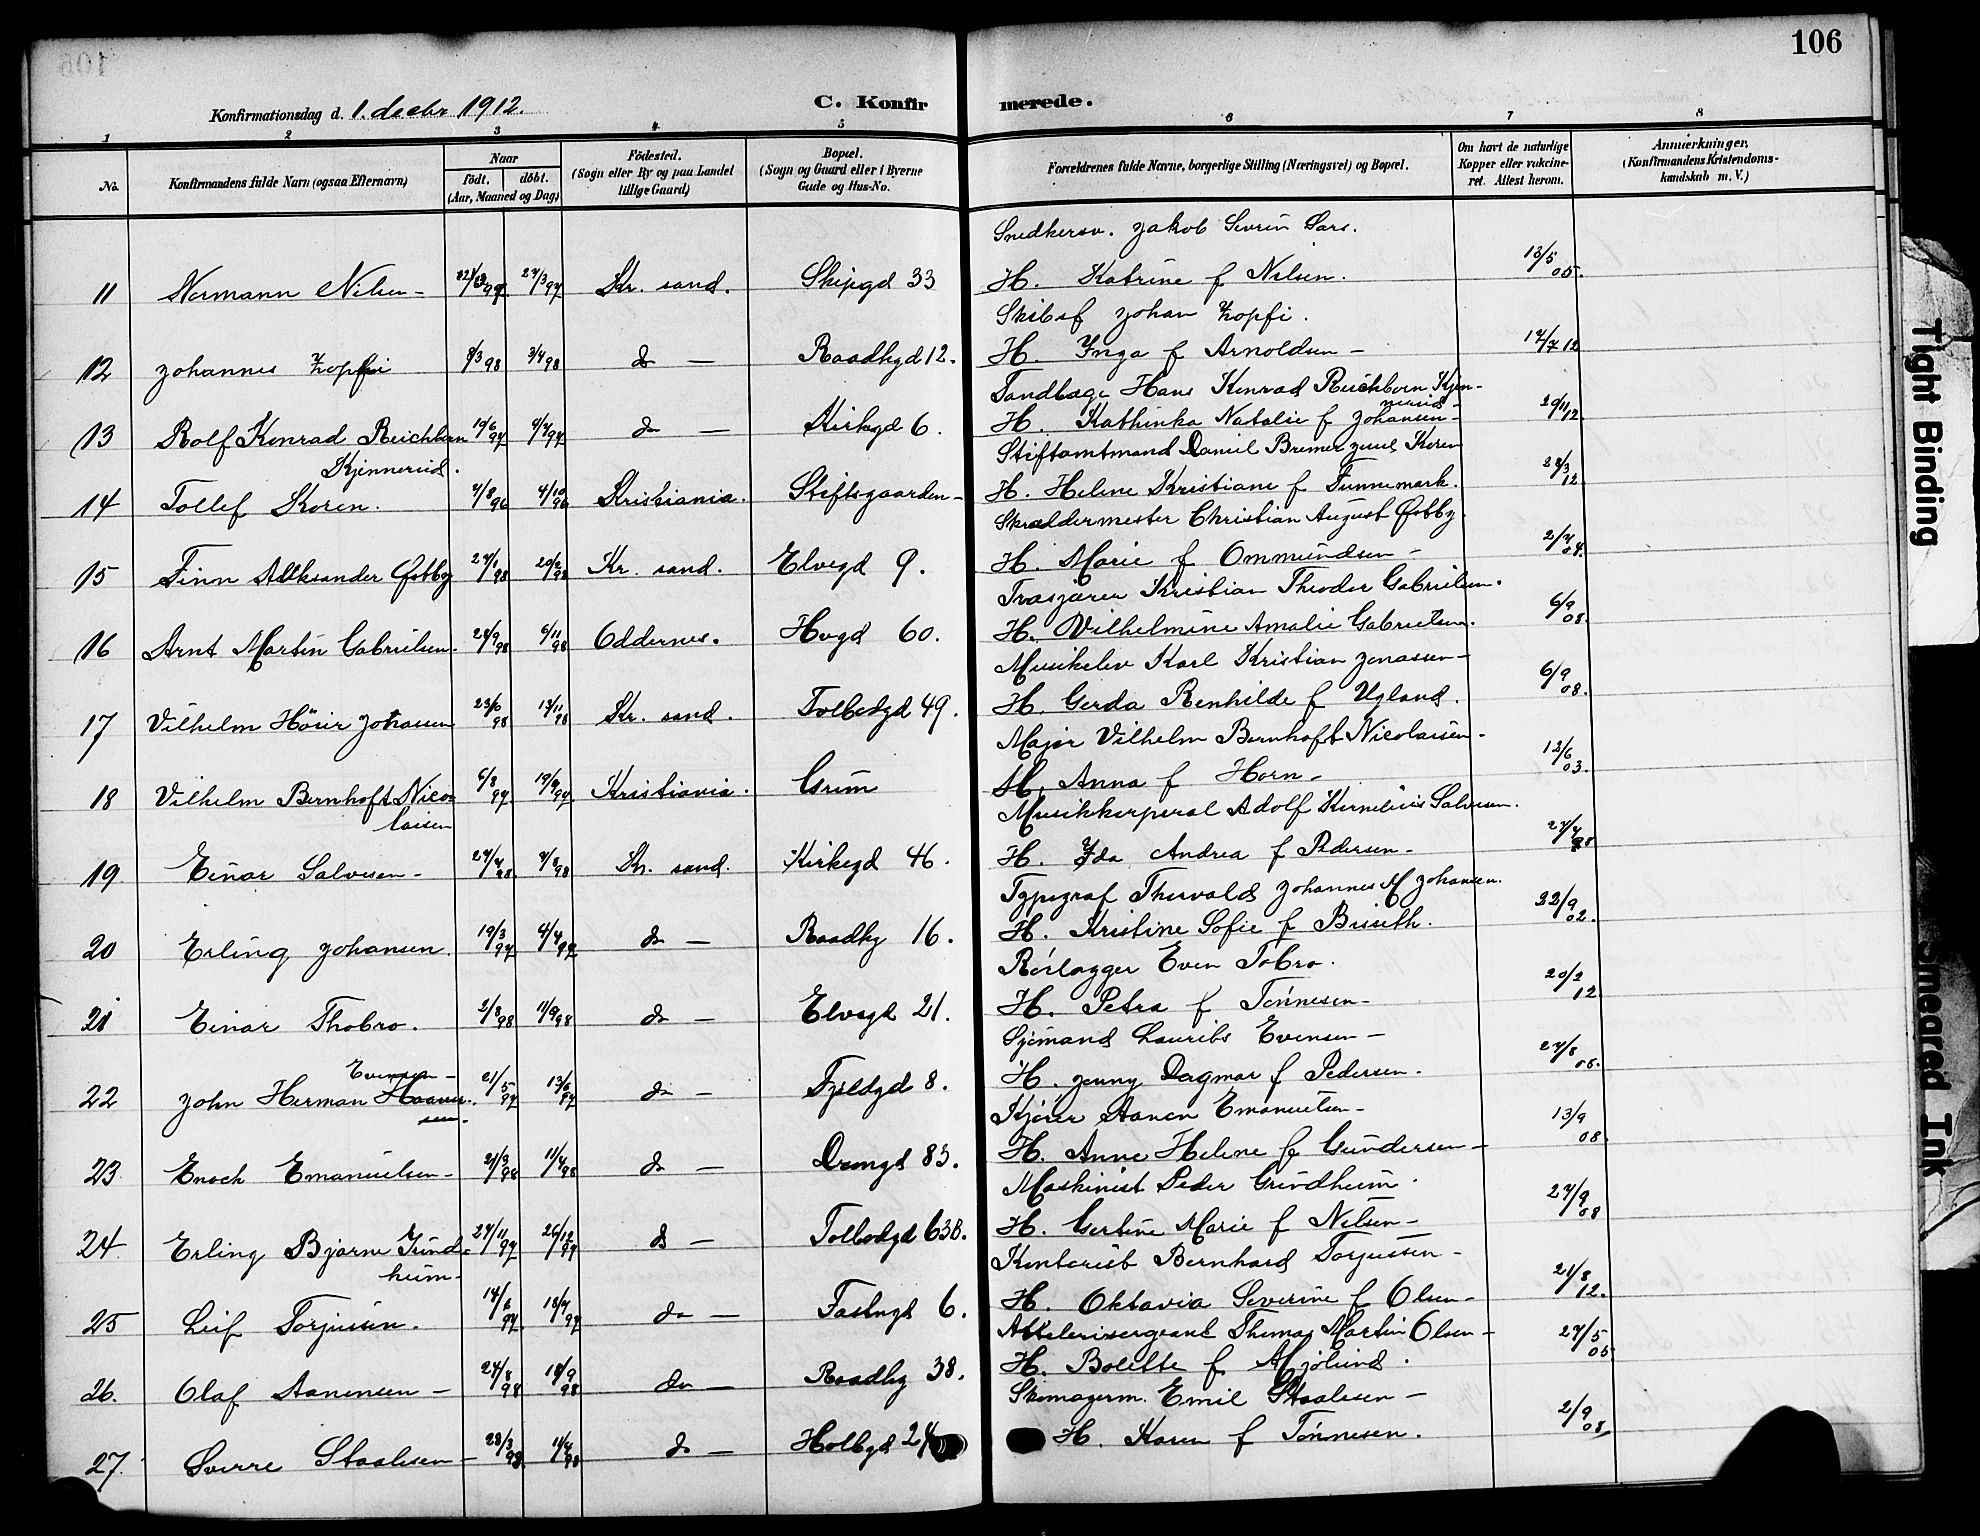 106
Konfirmationsdag d. 1. decbr 1912.
C. Konfirmerede.
1 2 3 4 5 6 7 8
No.
Konfirmandens fulde Navn (ogsaa Efternavn)
Naar
födt. döbt.
(Aar, Maaned og Dag)
Födested.
(Sogn eller By og paa Landet
tillige Gaard)
Bopæl.
(Sogn og Gaard eller i Byerne
Gade og Hus-No.
Forældrenes fulde Navne, borgerlige Stilling (Næringsvei) og Bopæl.
Om havt de naturlige
Kopper eller vakcine-
ret. Attest herom.
Anmærkninger.
(Konfirmandens Kristendoms-
kundskab m. V.)
Snedkersv. Jakob Sevrin Lars.
11 Normann Nilsen - 27/3 97 Kr. sand. Skipgd 33 H. Katrine f Nilsen. 13/5 05.
Skibsf Johan Zopfi.
12 Johannes Zopfi 8/3 98 3/4 98 do - Raadhgd 12. H. Ynga f Arnoldsen - 17/7 12
Tandlæge Hans Konrad Reichborn Kjen-
nerud-
13 Rolf Konrad Reichborn 19/6 97 9/7 97 do - Kirkegd 6. H. Kathinka Natalie f Johansen - 29/11 12
Kjennerud.
Stiftamtmand Daniel Bremer Juul Koren
14 Tollef Koren. 7/8 96 4/10 96 Kristiania. Stiftsgaarden - H. Helene Kristiane f Tunnemark. 28/3 12.
Skræddermester Christian August Østby.
15 Finn Alleksander Østby 27/1 98 20/2 98 Kr. sand. Elvegd 9. H. Marie f Ommundsen - 2/7 04.
Kristian Theodor Gabrielsen.
16 Arnt Martin Gabrielsen. 24/9 98 6/11 98 Oddernes. Hvgd 60. H. Vilhelmine Amalie Gabrielsen. 6/9 08.
Musikelev Karl Kristian Jonassen -
17 Vilhelm Höier Johassen 23/6 98 13/11 98 Kr. sand. Tolbodgd 49. H. Gerda Renhilde f Ugland. 6/9 08.
Major Vilhelm Bernhoft Nicolaisen -
18 Vilhelm Bernhoft Nico- 6/8 97. 19/9 97. Kristiania. Grim H. Anna f Horn - 12/6 03.
laisen
Musikkorporal Adolf Kornelius Salvesen.
19 Einar Salvesen - 27/4 98. 7/8 98 Kr. sand. Kirkegd 46. H. Yda Andrea f Pedersen - 27/4 98
Typograf Thorvald Johannes M Johansen.
20 Erling Johansen. 19/3 97 4/4 97 do - Raadhg 16. H. Kristine Sofie f Buseth. 22/9 02.
Rörlægger Even Tobro.
21 Einar Thobro. 2/8 98 11/9 98 do - Elvegd 21. H. Petra f Tönnesen - 20/2 12.
Sjömand Laurits Evensen -
Evensen -
22 John Herman Haaver- 21/5 97 13/6 97 do - Fjeldgd 8. H. Jenny Dagmar f Pedersen. 27/8 05.
sen.
Kjörer Aanen Emanuelsen -
23 Enoch Emanuelsen - 21/3 98 11/4 98 do - Drongd 83. H. Anne Helene f Gundersen - 13/9 08.
Maskinist Peder Grindheim.
24. Erling Bjarne Grind- 27/11 97 26/12 97 do - Tolbodgd 63B. H. Gertine Marie f Nilsen - 27/9 08
heim -
Kontorist Bernhard Torjussen -
25 Leif Torjusen. 14/6 97. 18/7 97 do - Fastngd 6. H. Oktavia Severine f Olsen - 21/8 12.
Attelerisergeant Thomas Martin Olsen -
26. Olaf Aanensen - 24/8 98 18/9 98 do - Raadhg 38. H. Bolette f Mjölund. 27/5 05.
Skomagerm. Emil Staalesen -
27. Sverre Staalesen - 28/3 98 11/4 98 do - Holbgd 24 H. Karen f Tönnesen. 2/9 08.
Tight Binding
Smeared Ink